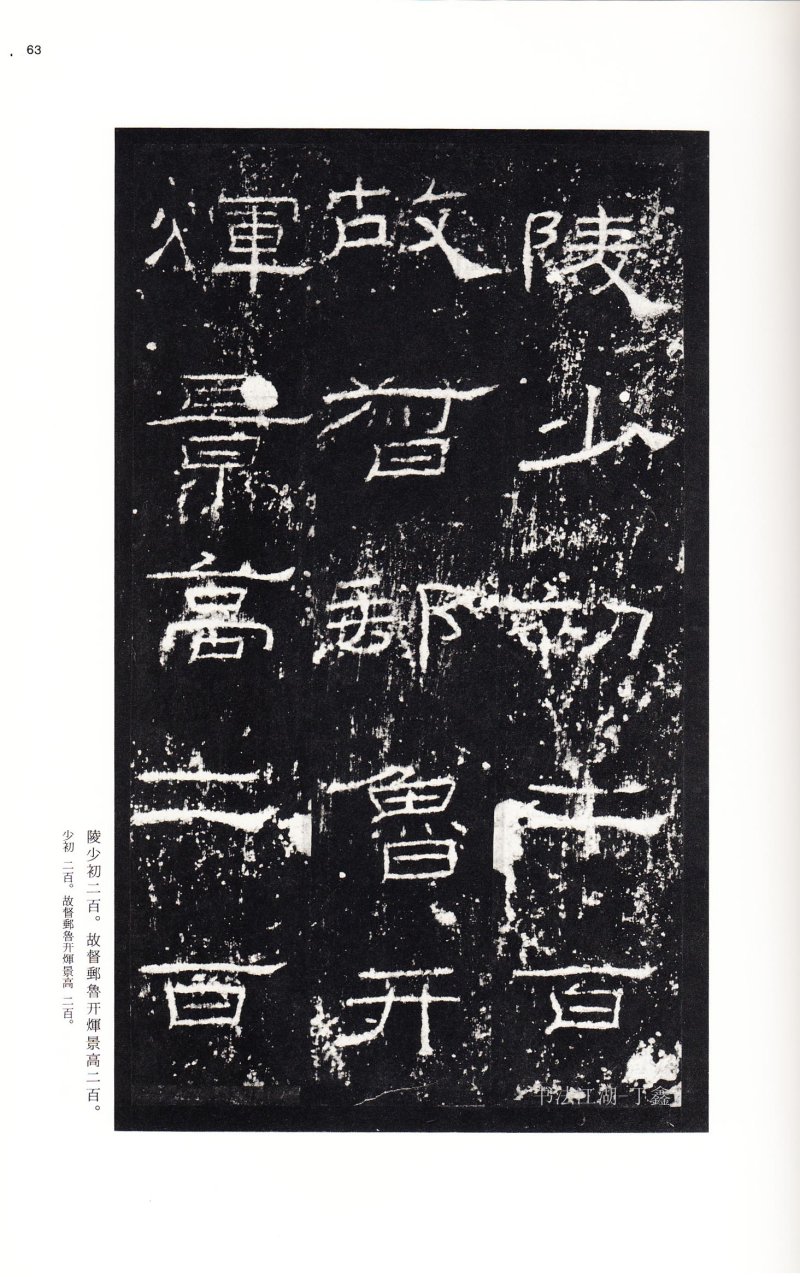 63
陵少初二百
故督郵魯开
煇景高二百
陵少初二百。故督郵魯开煇景高二百。
少初 二百。故督郵魯开煇景高 二百。
书法江湖-丁鑫